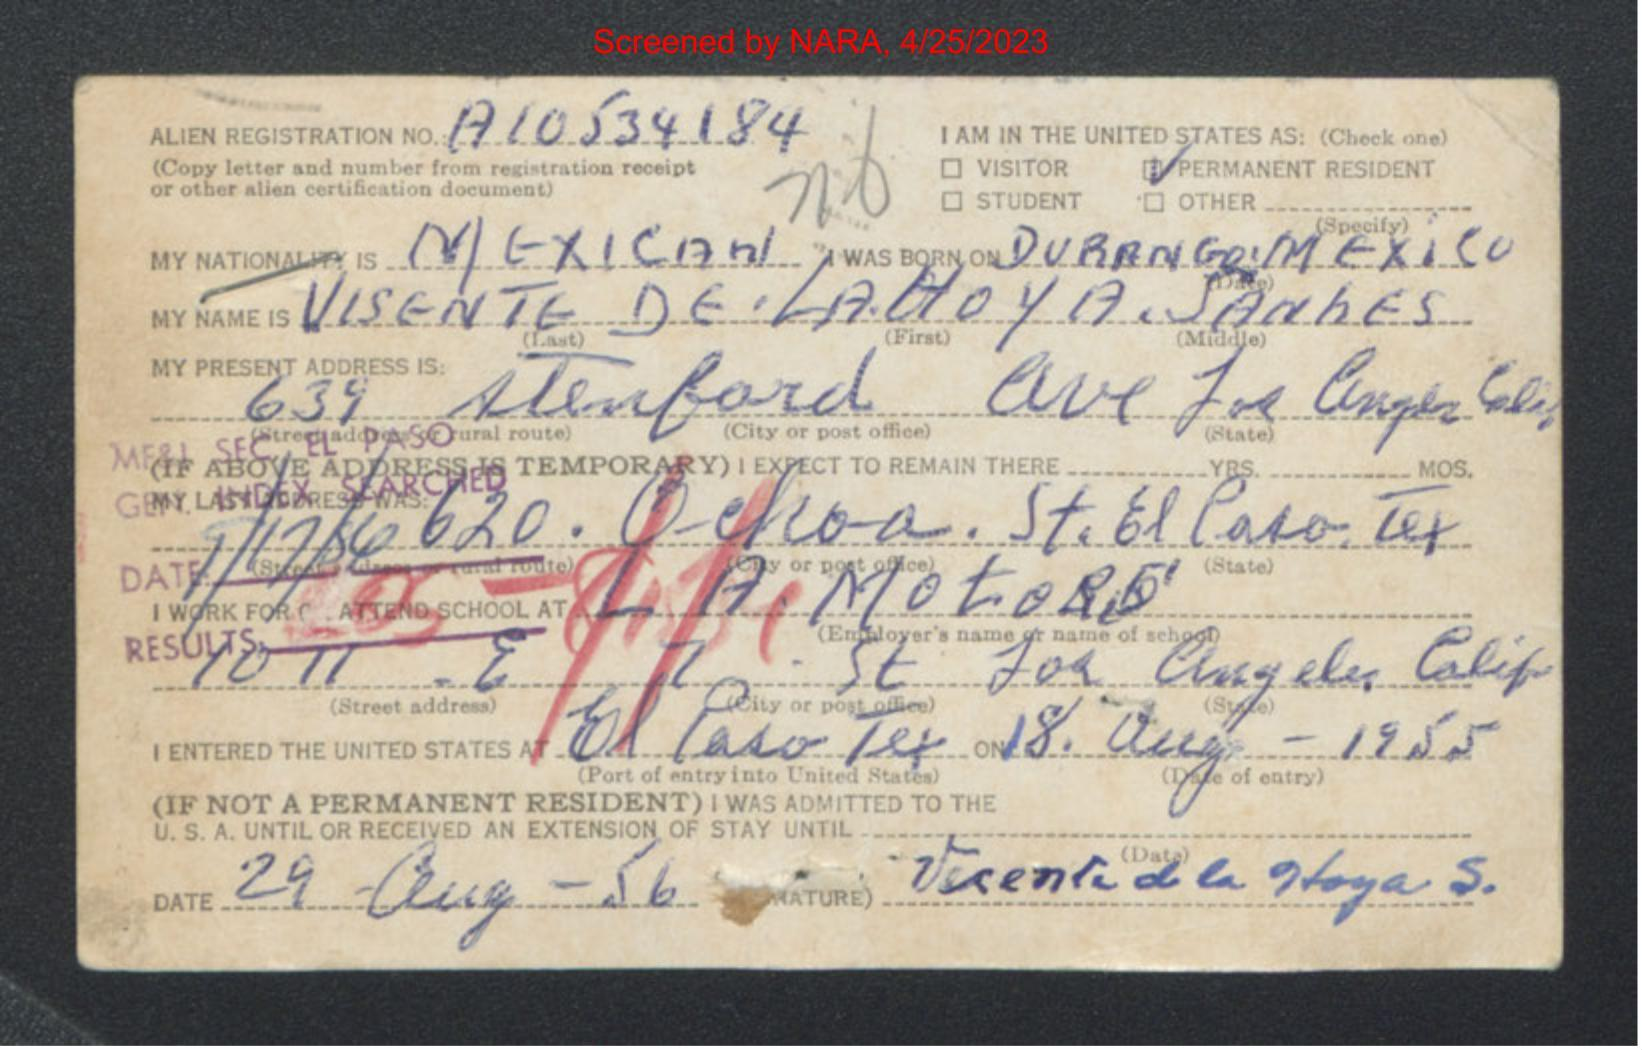 Screened by NARA, 4/25/2023
ALIEN REGISTRATION NO. A10534184
I AM IN THE UNITED STATES AS: (Check one)
(Copy letter and number from registration receipt
or other alien certification document)
☐ VISITOR ☑ PERMANENT RESIDENT
☐ STUDENT ☐ OTHER
(Specify)
MY NATIONALITY IS MEXICAN I WAS BORN ON DURANGO. MEXICO
(Date)
MY NAME IS VISENTE DE. LA. HOYA. SANHES
(Last) (First) (Middle)
MY PRESENT ADDRESS IS:
639 Stenford Ave Los Angeles Calif
(Street address or rural route) (City or post office) (State)
MF&I SEC. EL PASO
(IF ABOVE ADDRESS IS TEMPORARY) I EXPECT TO REMAIN THERE YRS. MOS.
GEN. INDEX SEARCHED
MY LAST ADDRESS WAS:
620. Ochoa. St. El Paso. Tex
DATE:
(Street address or rural route) (City or post office) (State)
I WORK FOR OR ATTEND SCHOOL AT L. A. Motors
(Employer's name or name of school)
RESULTS:
1011 . E 7 . St Los Angeles Calif
(Street address) (City or post office) (State)
I ENTERED THE UNITED STATES AT El Paso Tex ON 18. Aug - 1955
(Port of entry into United States) (Date of entry)
(IF NOT A PERMANENT RESIDENT) I WAS ADMITTED TO THE
U. S. A. UNTIL OR RECEIVED AN EXTENSION OF STAY UNTIL
(Date)
DATE 29 - Aug - 56 NATURE) Vicente de la Hoya S.